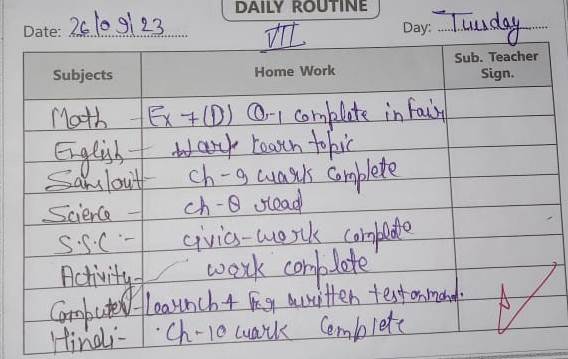 DAILY ROUTINE
Date: 26/09/23 VII Day: Tuesday
Subjects Home Work Sub. Teacher Sign.
Math - Ex 7(D) Q-1 complete in fair
English - work learn topic
Sanskrit - ch-9 work complete
Science - ch-8 read
S.S.C :- civics-work complete
Activity - work complete
Computer - Learn ch 4 for written test on mond.
Hindi - ch-10 work complete